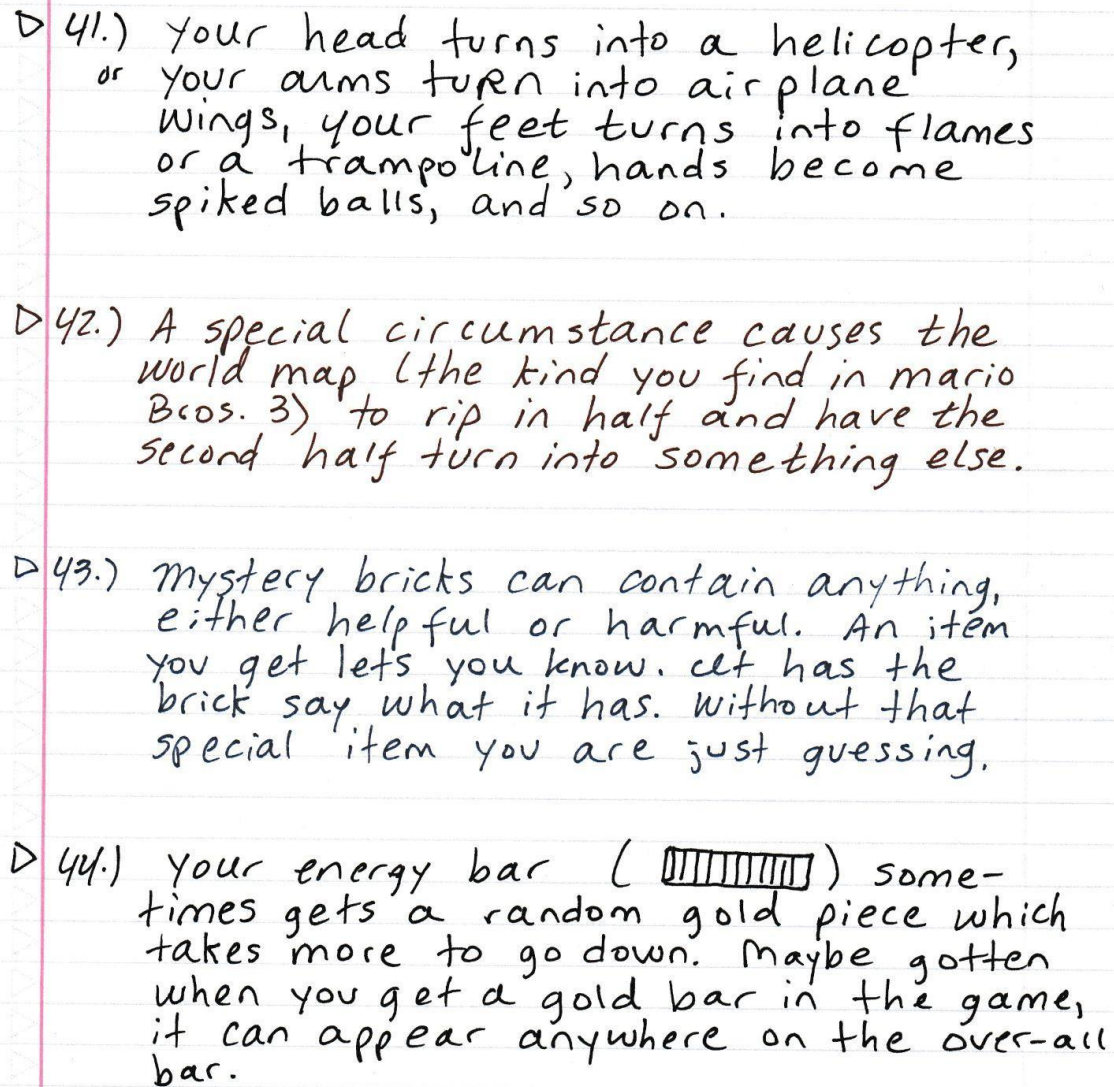 41.) Your head turns into a helicopter,
or your arms turn into airplane
wings, your feet turns into flames
or a trampoline, hands become
spiked balls, and so on.
42.) A special circumstance causes the
world map (the kind you find in mario
Bros. 3) to rip in half and have the
second half turn into something else.
43.) Mystery bricks can contain anything,
either helpful or harmful. An item
you get lets you know. It has the
brick say what it has. Without that
special item you are just guessing.
44.) Your energy bar ( ) some-
times gets a random gold piece which
takes more to go down. Maybe gotten
when you get a gold bar in the game,
it can appear anywhere on the over-all
bar.